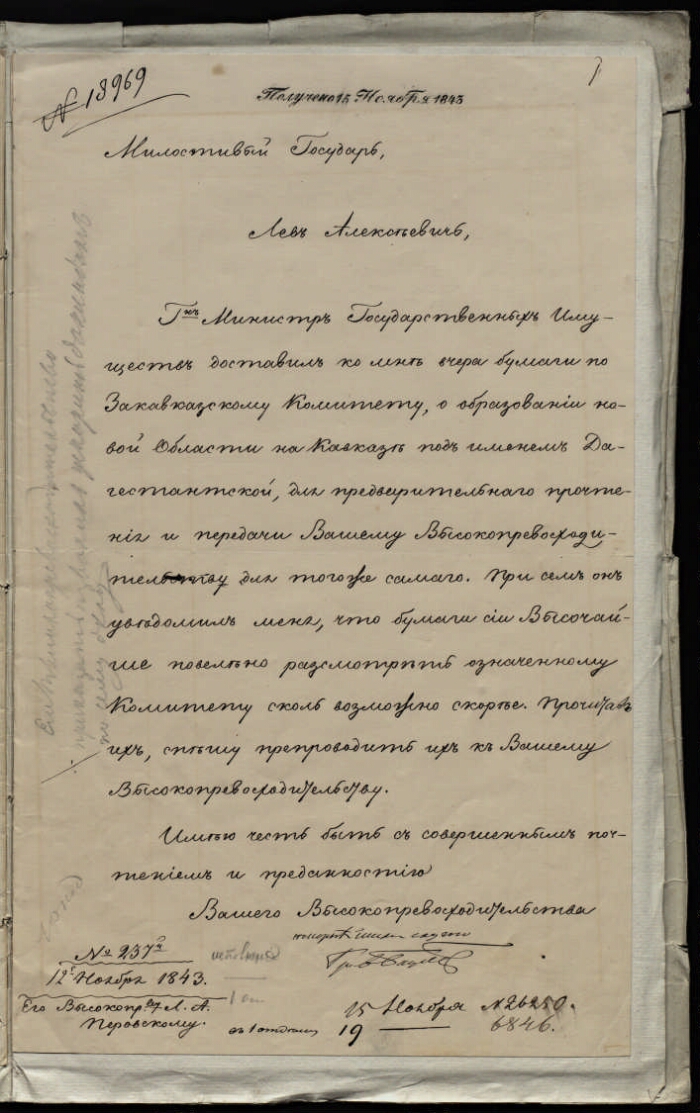 № 18969
Получено 15 Ноября 1843
1
Милостивый Государь,
Левъ Алексѣевичъ,
Г-нъ Министръ Государственныхъ Иму-
ществъ доставилъ ко мнѣ вчера бумаги по
Закавказскому Комитету, о образованіи но-
вой Области на Кавказѣ подъ именемъ Да-
гестантской, для предварительнаго прочте-
нія и передачи Вашему Высокопревосходи-
тельству для того же самаго. При семъ онъ
увѣдомилъ меня, что бумаги сіи Высочай-
ше повелѣно разсмотрѣть означенному
Комитету сколь возможно скорѣе. Прочитавъ
ихъ, спѣшу препроводить ихъ къ Вашему
Высокопревосходительству.
Имѣю честь быть съ совершеннымъ поч-
теніемъ и преданностію
Вашего Высокопревосходительства
№ 237
12 Ноября 1843.
Его Высокопр-ву Л. А.
Перовскому.
15 Ноября № 26250.
19 — 6846.